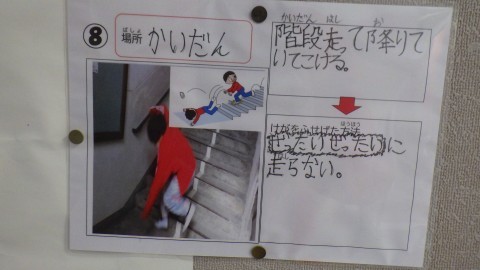 ⑧
場所 かいだん
ばしょ
かいだん はし お
階段走って降りて
いてこける。
けがをふせげた方法
ほうほう
ぜったいぜったいに
走らない。